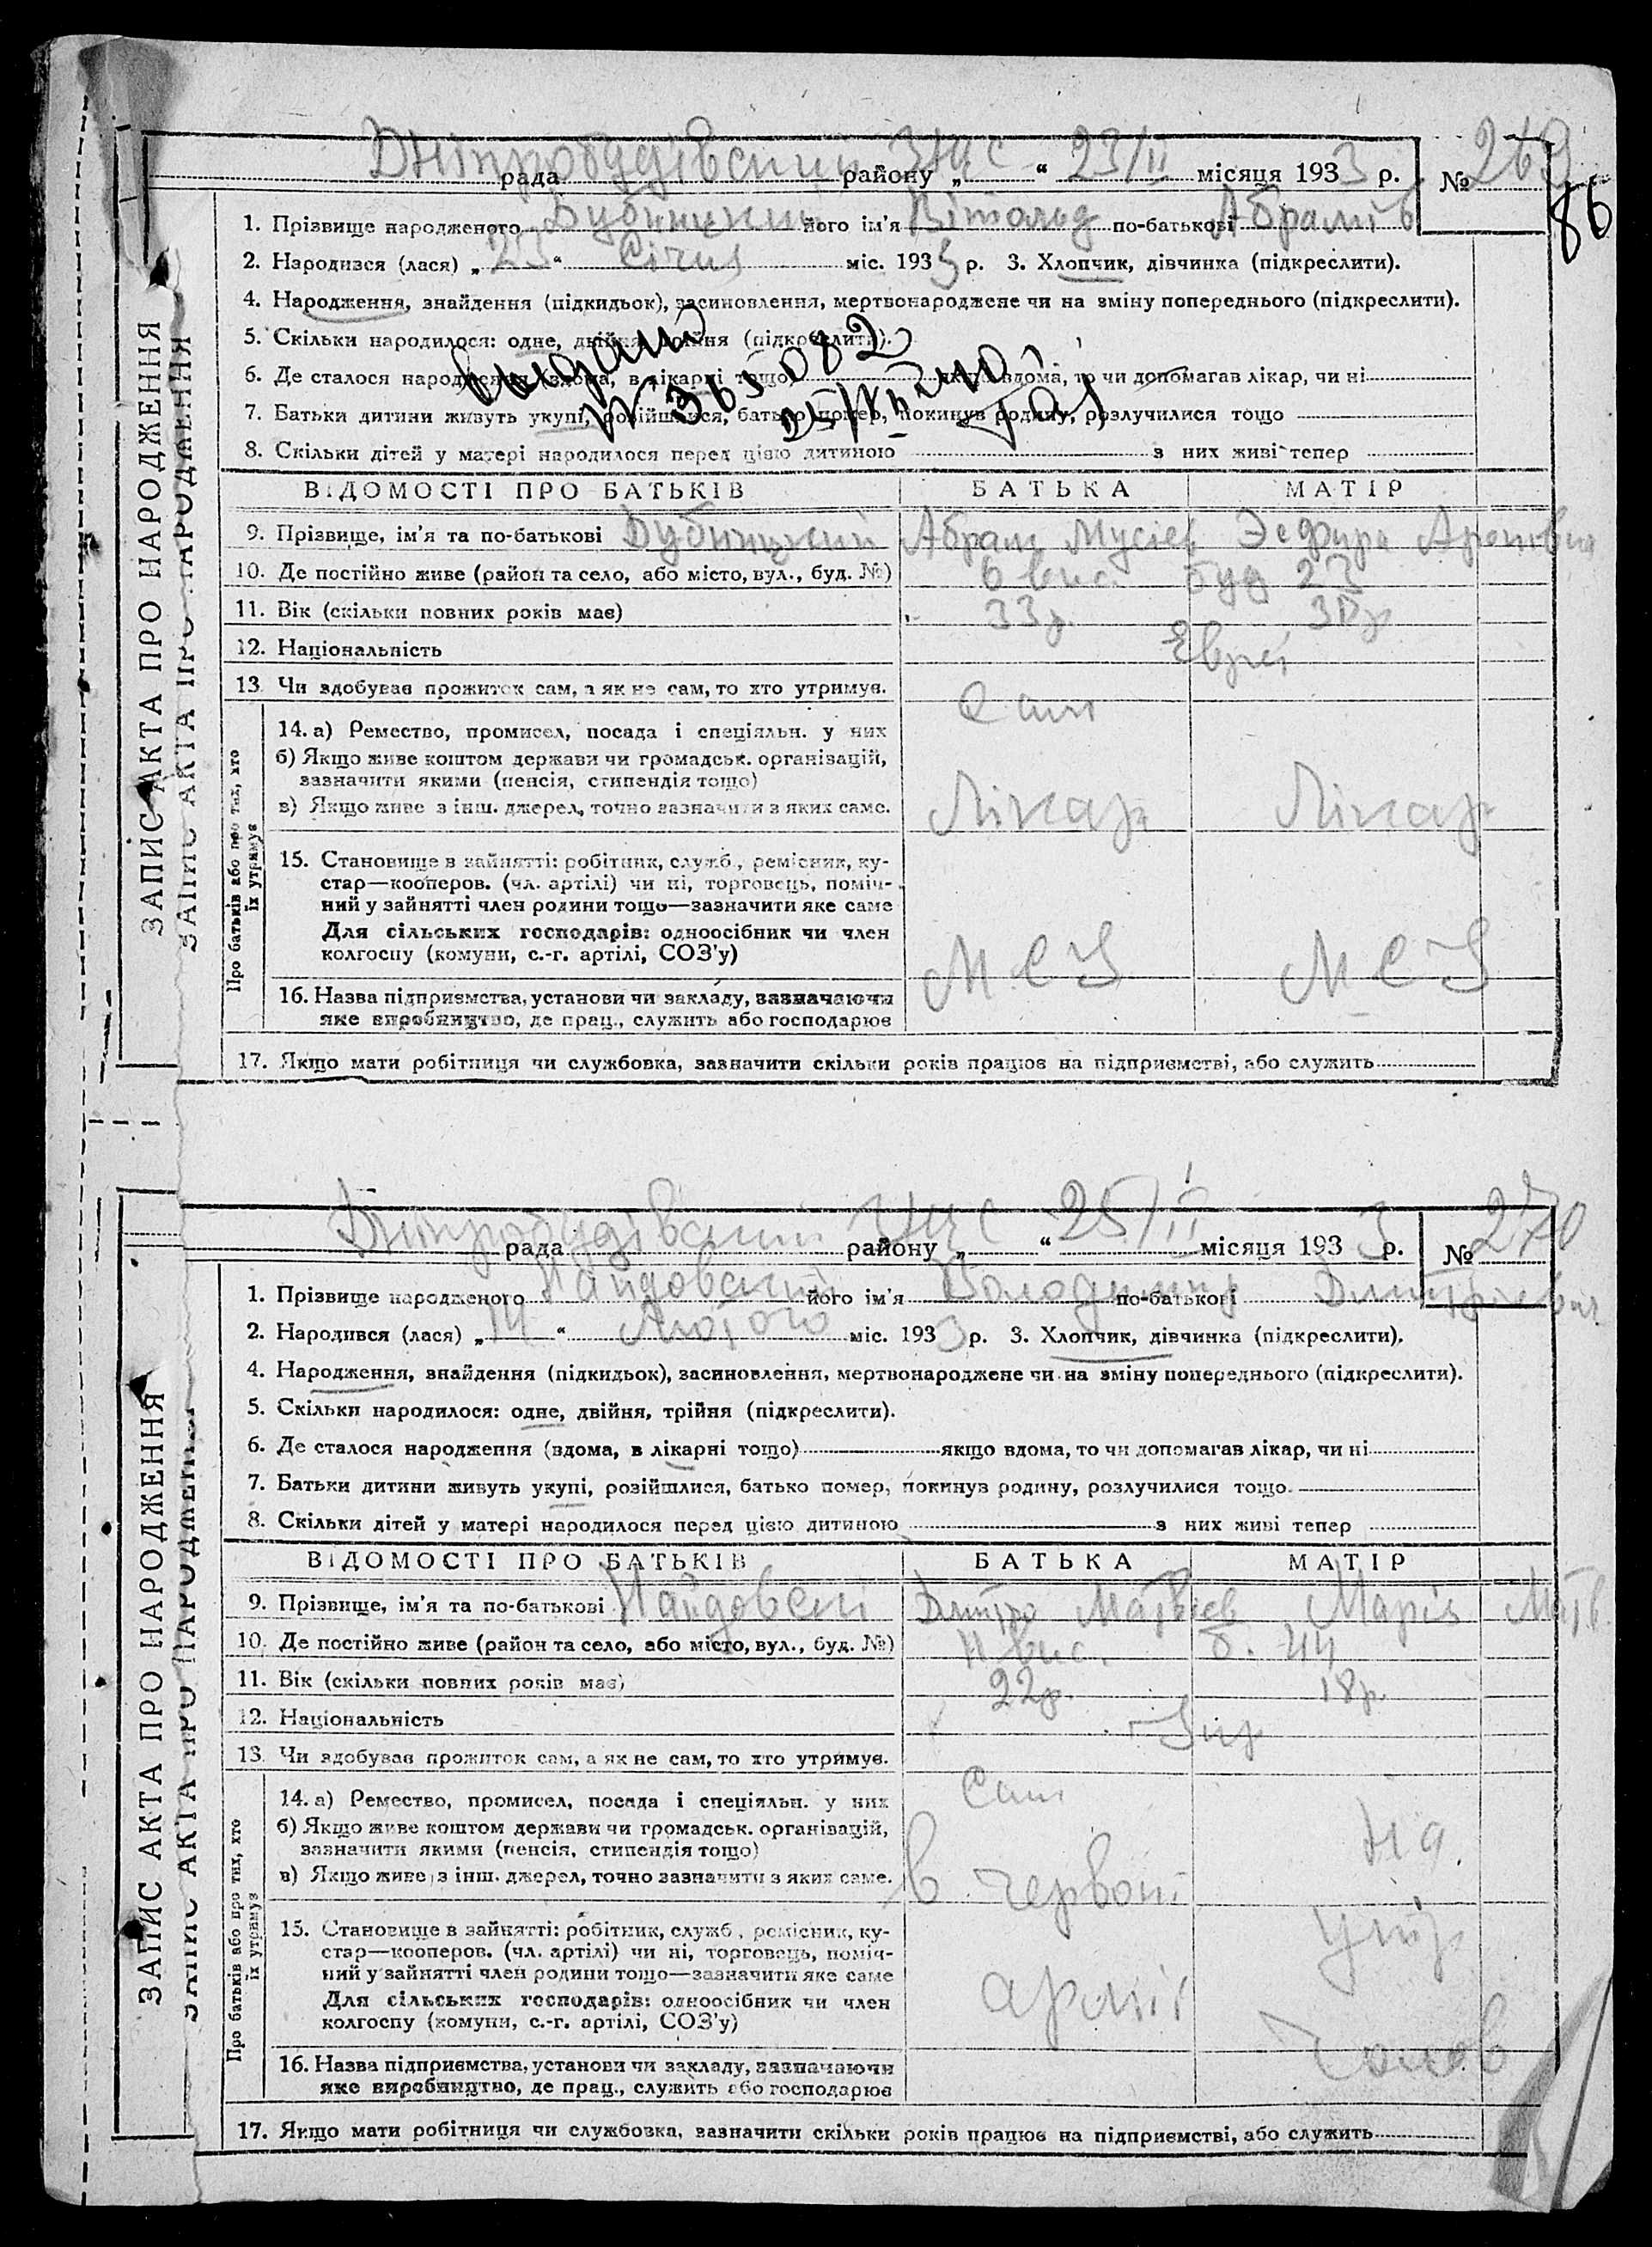 Дніпробудівський ЗАГС
рада району „ “ 23/II місяця 1933 р. № 269
86
1. Прізвище народженого Дубницький його ім'я Вітольд по-батькові Абрамів
2. Народився (лася) „23“ Січня міс. 1933 р. 3. Хлопчик, дівчинка (підкреслити).
4. Народження, знайдення (підкидьок), засиновлення, мертвонароджене чи на зміну попереднього (підкреслити).
5. Скільки народилося: одне, двійня, трійня (підкреслити).
6. Де сталося народження (вдома, в лікарні тощо) якщо вдома, то чи допомагав лікар, чи ні
7. Батьки дитини живуть укупі, розійшлися, батько помер, покинув родину, розлучилися тощо
8. Скільки дітей у матері народилося перед цією дитиною з них живі тепер
ВІДОМОСТІ ПРО БАТЬКІВ БАТЬКА МАТІР
9. Прізвище, ім'я та по-батькові Дубницький Абрам Мусіев Эсфира Ароновна
10. Де постійно живе (район та село, або місто, вул., буд. №) 6 вис. буд
11. Вік (скільки повних років має) 33р. 30р
12. Національність Євреї
13. Чи здобуває прожиток сам, а як не сам, то хто утримує. Сам
Про батьків або про тих, хто їх утримує
14. а) Ремество, промисел, посада і спеціяльн. у них
б) Якщо живе коштом держави чи громадськ. організацій,
зазначити якими (пенсія, стипендія тощо)
в) Якщо живе з інш. джерел, точно зазначити з яких саме. Лікар Лікар
15. Становище в зайнятті: робітник, служб., ремісник, ку-
стар—кооперов. (чл. артілі) чи ні, торговець, поміч-
ний у зайнятті член родини тощо—зазначити яке саме
Для сільських господарів: одноосібник чи член
колгоспу (комуни, с.-г. артілі, СОЗ'у) М С Ч М С Ч
16. Назва підприємства, установи чи закладу, зазначаючи
яке виробництво, де прац., служить або господарює
17. Якщо мати робітниця чи службовка, зазначити скільки років працює на підприємстві, або служить
ЗАПИС АКТА ПРО НАРОДЖЕННЯ
ЗАПИС АКТА ПРО НАРОДЖЕННЯ
Дніпробудівський ЗАГС
рада району „ “ 25/II місяця 1933 р. № 270
1. Прізвище народженого Найдовський його ім'я Володимир по-батькові Дмитріевич
2. Народився (лася) „14“ Лютого міс. 1933 р. 3. Хлопчик, дівчинка (підкреслити).
4. Народження, знайдення (підкидьок), засиновлення, мертвонароджене чи на зміну попереднього (підкреслити).
5. Скільки народилося: одне, двійня, трійня (підкреслити).
6. Де сталося народження (вдома, в лікарні тощо) якщо вдома, то чи допомагав лікар, чи ні
7. Батьки дитини живуть укупі, розійшлися, батько помер, покинув родину, розлучилися тощо.
8. Скільки дітей у матері народилося перед цією дитиною з них живі тепер
ВІДОМОСТІ ПРО БАТЬКІВ БАТЬКА МАТІР
9. Прізвище, ім'я та по-батькові Найдовськ Дмитро Матвіев Марія Матв.
10. Де постійно живе (район та село, або місто, вул., буд. №) вис. б. 44
11. Вік (скільки повних років має) 22р. 18р.
12. Національність Укр
13. Чи здобуває прожиток сам, а як не сам, то хто утримує. Сам
Про батьків або про тих, хто їх утримує
14. а) Ремество, промисел, посада і спеціяльн. у них
б) Якщо живе коштом держави чи громадськ. організацій, На
зазначити якими (пенсія, стипендія тощо)
в) Якщо живе з інш. джерел, точно зазначити з яких саме. в червон
15. Становище в зайнятті: робітник, служб., ремісник, ку- утр
стар—кооперов. (чл. артілі) чи ні, торговець, поміч-
ний у зайнятті член родини тощо—зазначити яке саме армії
Для сільських господарів: одноосібник чи член
колгоспу (комуни, с.-г. артілі, СОЗ'у) чолов
16. Назва підприємства, установи чи закладу, зазначаючи
яке виробництво, де прац., служить або господарює
17. Якщо мати робітниця чи службовка, зазначити скільки років працює на підприємстві, або служить
ЗАПИС АКТА ПРО НАРОДЖЕННЯ
ЗАПИС АКТА ПРО НАРОДЖЕННЯ